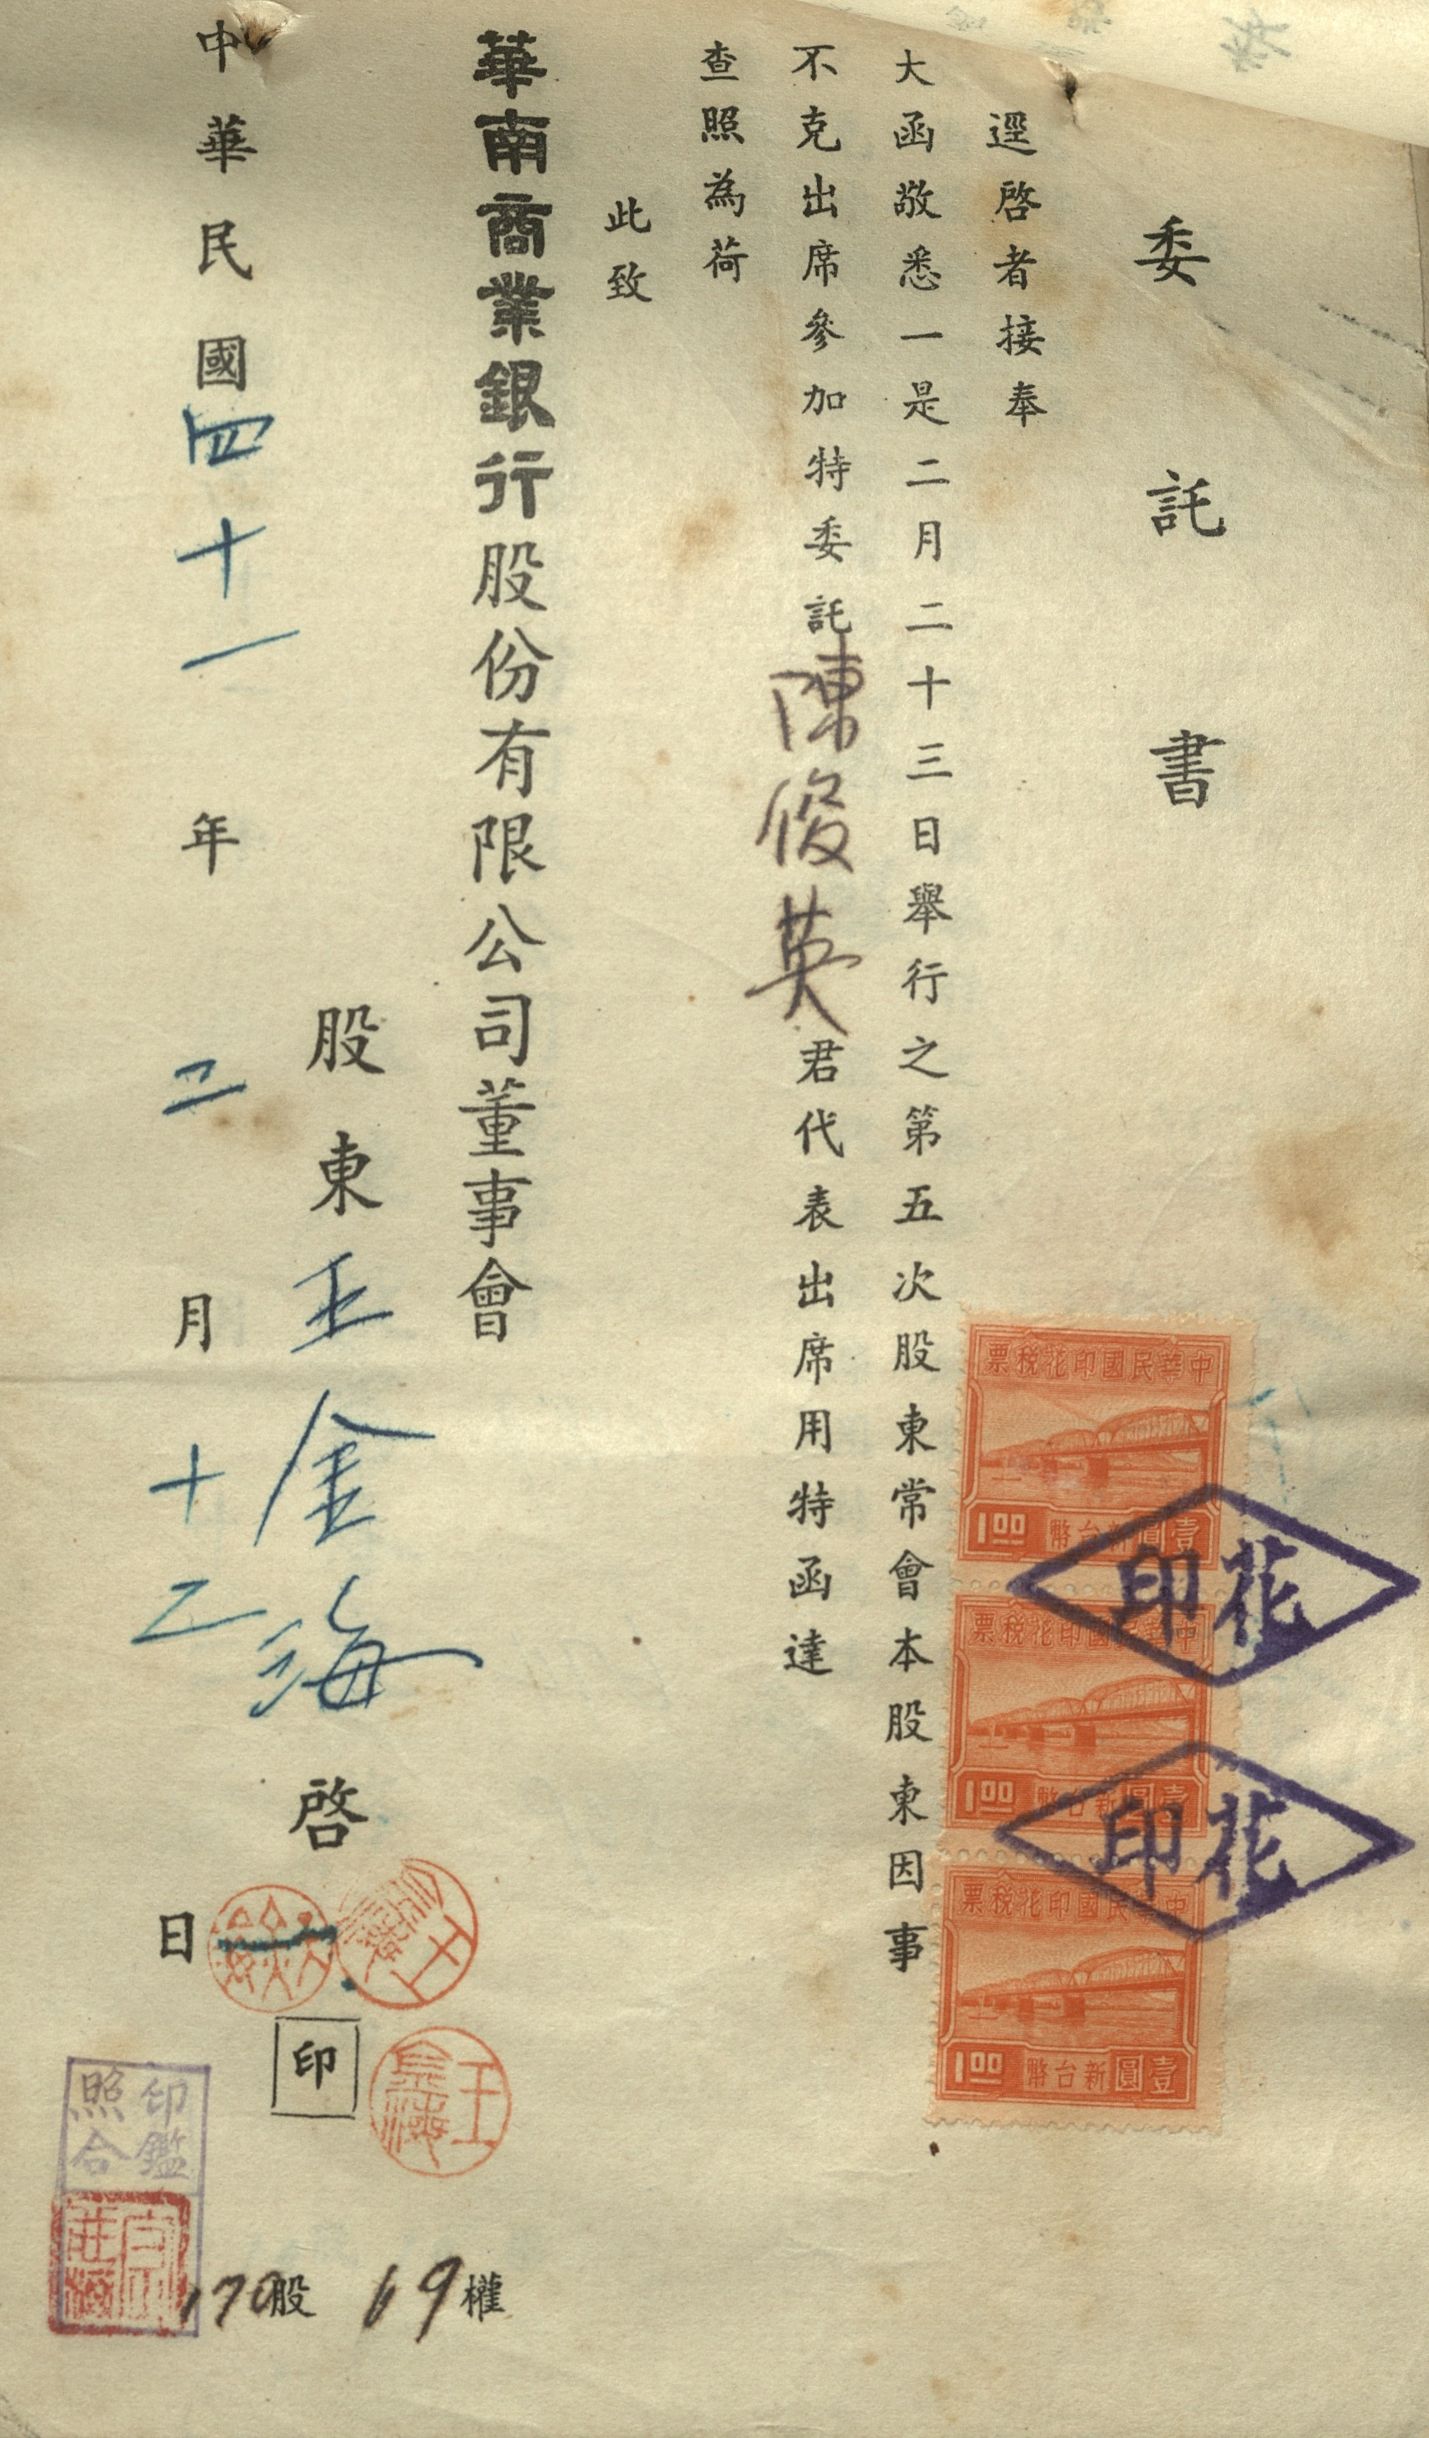 委託書
逕啓者接奉
大函敬悉一是二月二十三日舉行之第五次股東常會本股東因事
不克出席參加特委託陳俊英君代表出席用特函達
查照為荷
此致
華南商業銀行股份有限公司董事會
股東王金海啓
印
中華民國四十一年二月十二日
170股 69權
中華民國印花稅票
1.00 壹圓新台幣
中華民國印花稅票
1.00 壹圓新台幣
中華民國印花稅票
1.00 壹圓新台幣
花印
花印
王金海
印鑑照合